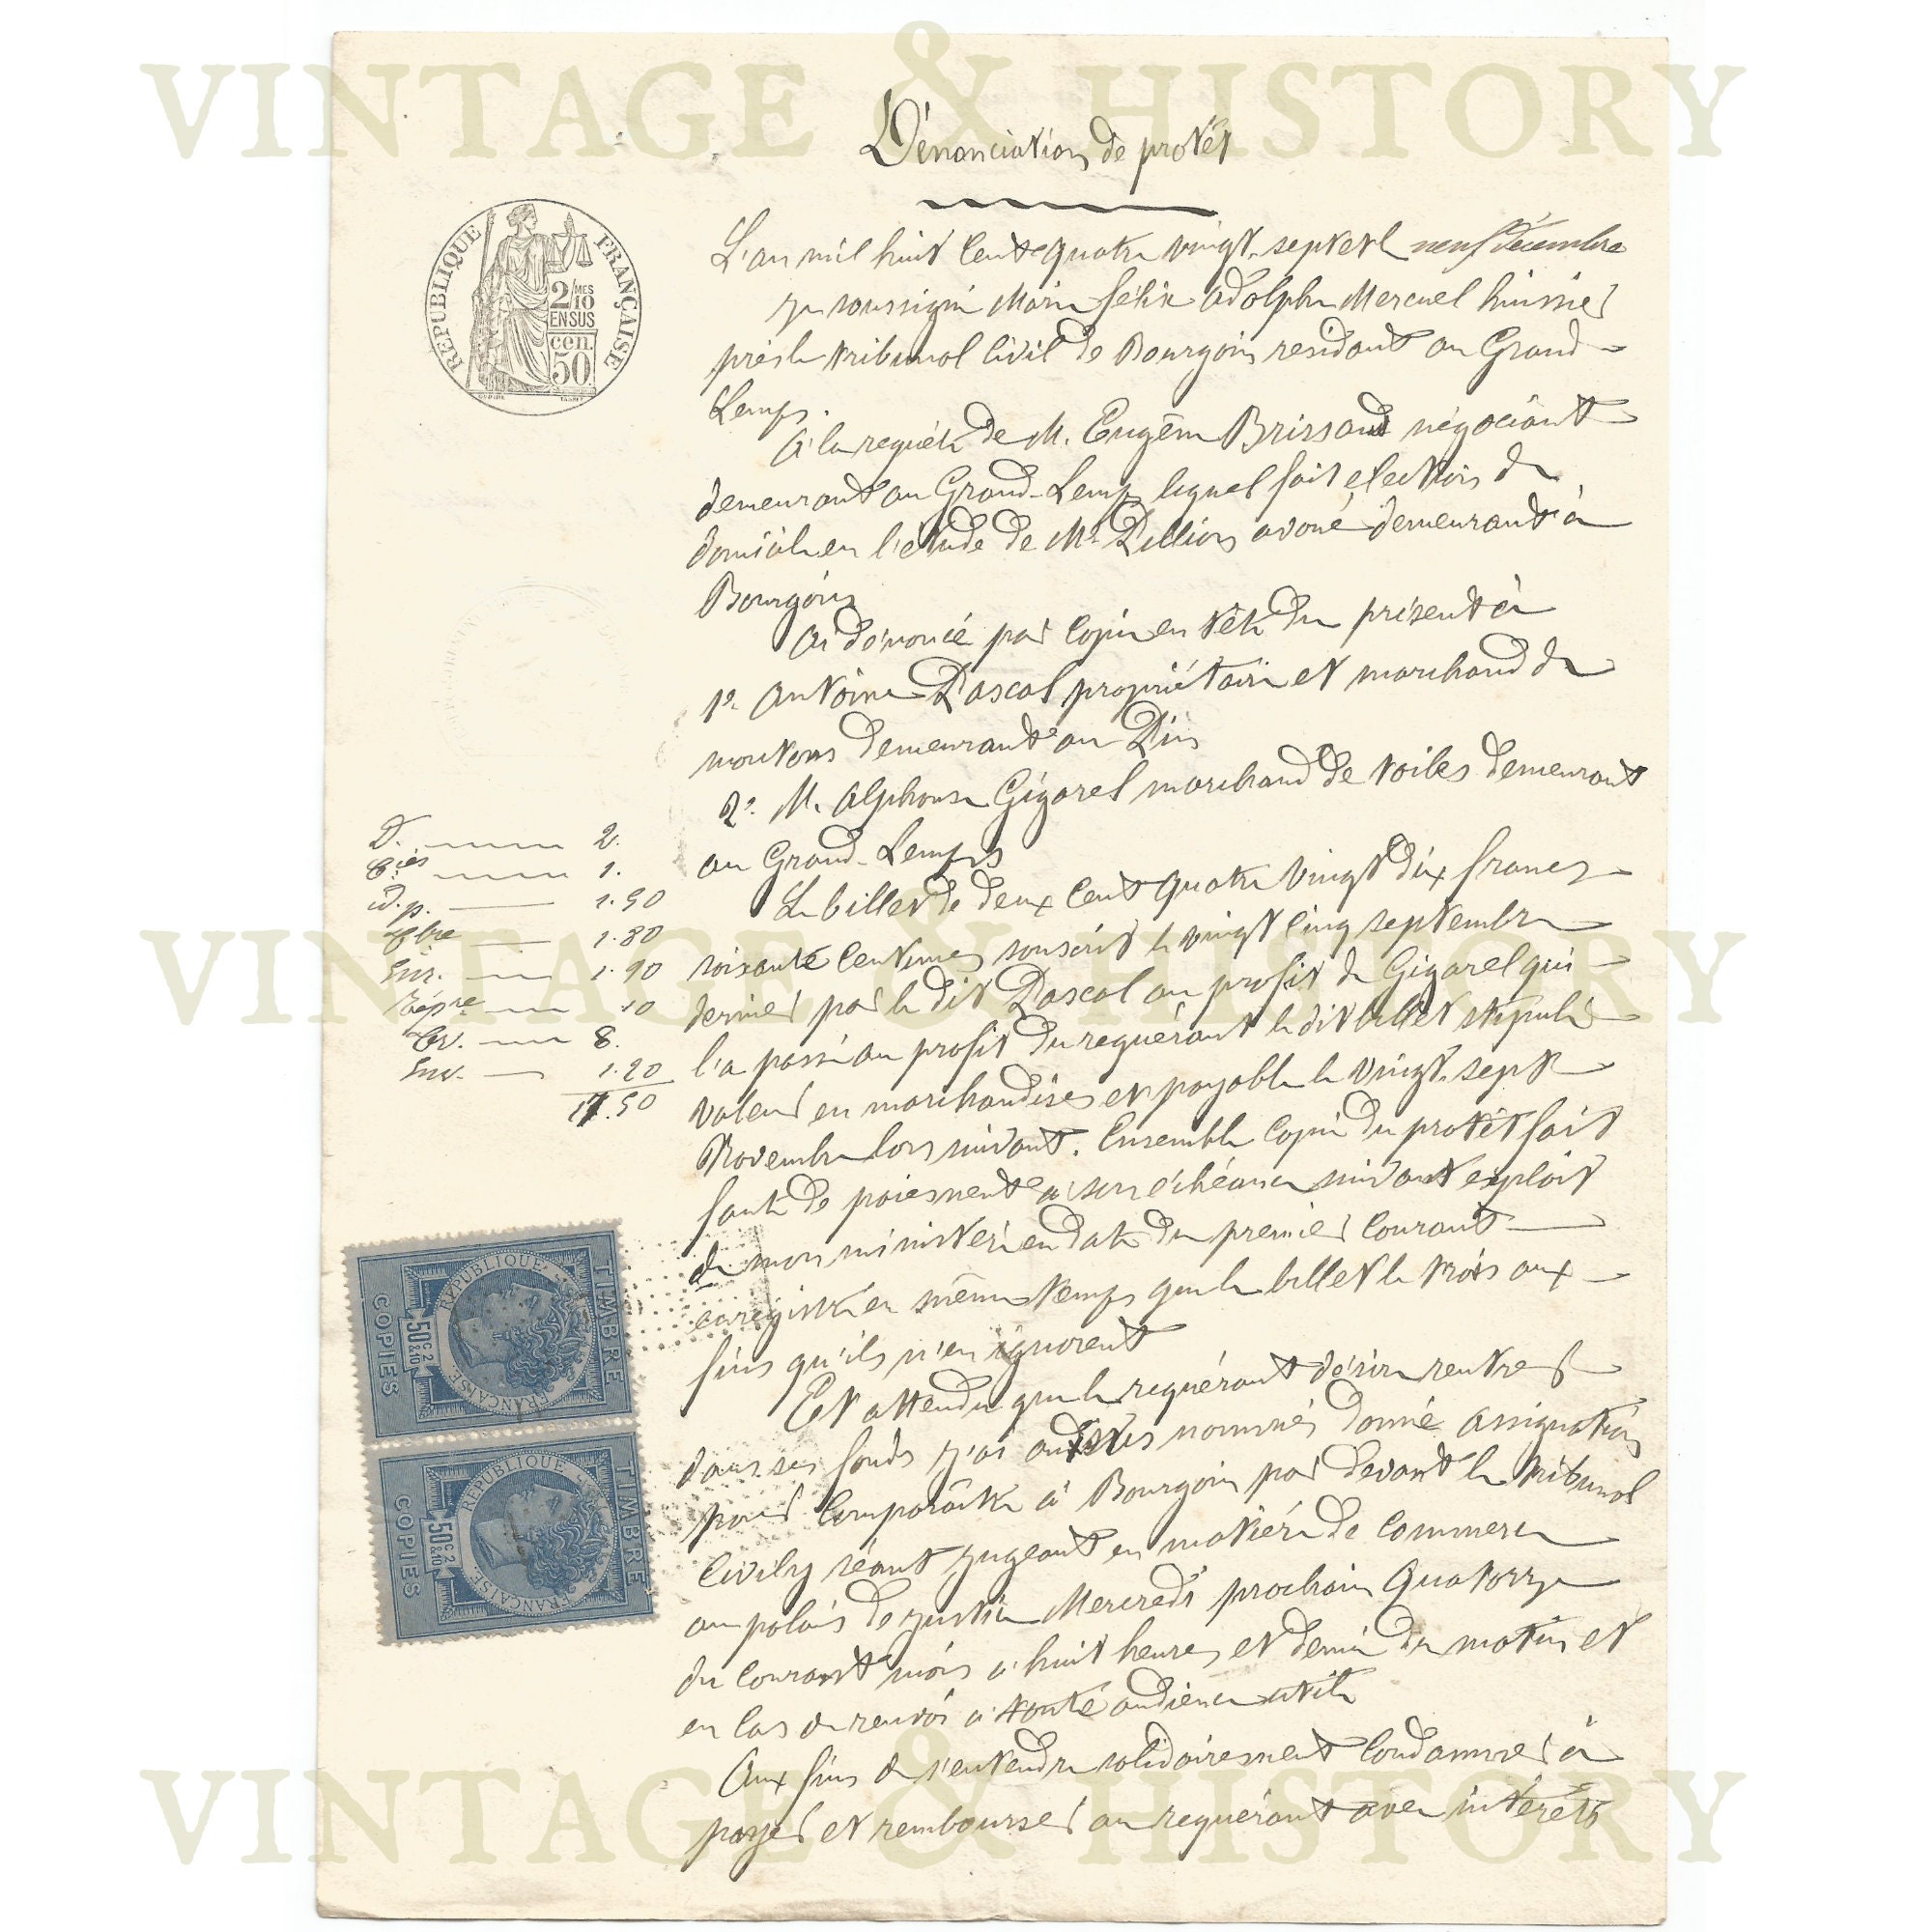 VINTAGE & HISTORY
Dénonciation de protêt
REPUBLIQUE FRANÇAISE
2/10 MES
EN SUS
cen.
50
L'an mil huit cent quatre vingt-sept et le neuf décembre
Je soussigné Marie Félix Adolphe Mercuel huissier
près le tribunal civil de Bourgoin résidant au Grand-
Lemps.
A la requête de M. Eugène Brissaud négociant
demeurant au Grand-Lemps lequel fait election de
domicile en l'étude de Me avoué demeurant à
Bourgoin
Ai dénoncé par copie en tête du présent à
1º Antoine Pascal propriétaire et marchand de
moutons demeurant au Pin
2º M. Alphonse Gigarel marchand de toiles demeurant
au Grand-Lemps
Le billet de deux cent quatre vingt dix francs
soixante centimes souscrit le vingt cinq septembre
dernier par le dit Pascal au profit de Gigarel qui
l'a passé au profit du requérant le dit billet stipulé
valeur en marchandises et payable le vingt-sept
Novembre lors suivant. Ensemble copie du protêt fait
faute de paiement à son échéance suivant exploit
de mon ministère en date du premier courant
enregistré en même temps que le billet le trois aux
fins qu'ils n'en ignorent
Et attendu que le requérant désire rentrer
dans ses fonds j'ai aux susnommés donné assignation
pour comparaître à Bourgoin par devant le tribunal
civil y séant jugeant en matière de commerce
au palais de justice Mercredi prochain Quatorze
du courant mois à huit heures et demie du matin et
en cas de renvoi à toute audience utile
Aux fins de s'entendre solidairement condamner à
payer et rembourser au requérant avec intérêts
D. 2.
Cies 1.
D.p. 1.50
Tbre 1.80
Enr. 1.90
Répre 10
Tr. 8.
Env. 1.20
17.50
VINTAGE & HISTORY
TIMBRE
REPUBLIQUE FRANÇAISE
50C 2/10
COPIES
TIMBRE
REPUBLIQUE FRANÇAISE
50C 2/10
COPIES
VINTAGE & HISTORY